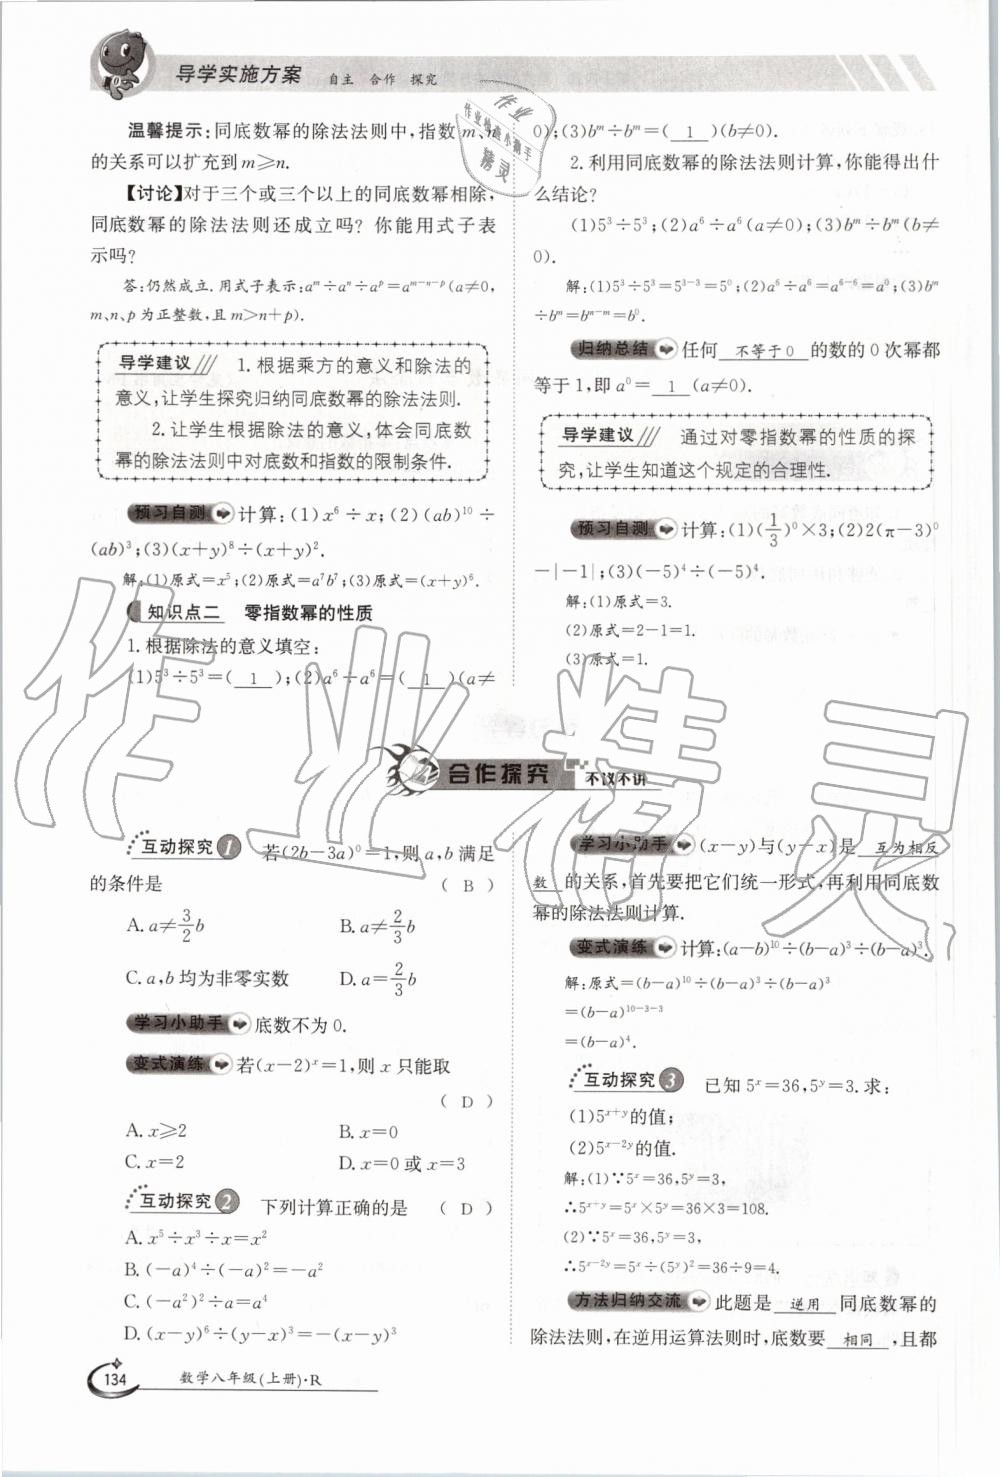 导学实施方案 自主 合作 探究
温馨提示:同底数幂的除法法则中,指数 m、n
的关系可以扩充到 m≥n.
【讨论】对于三个或三个以上的同底数幂相除,
同底数幂的除法法则还成立吗? 你能用式子表
示吗?
答:仍然成立.用式子表示:aᵐ÷aⁿ÷aᵖ=aᵐ⁻ⁿ⁻ᵖ(a≠0,
m、n、p 为正整数,且 m>n+p).
导学建议 1.根据乘方的意义和除法的
意义,让学生探究归纳同底数幂的除法法则.
2.让学生根据除法的意义,体会同底数
幂的除法法则中对底数和指数的限制条件.
预习自测 计算:(1)x⁶÷x;(2)(ab)¹⁰÷
(ab)³;(3)(x+y)⁸÷(x+y)².
解:(1)原式=x⁵;(2)原式=a⁷b⁷;(3)原式=(x+y)⁶.
知识点二 零指数幂的性质
1.根据除法的意义填空:
(1)5³÷5³=( 1 );(2)a⁶÷a⁶=( 1 )(a≠
0);(3)bᵐ÷bᵐ=( 1 )(b≠0).
2.利用同底数幂的除法法则计算,你能得出什
么结论?
(1)5³÷5³;(2)a⁶÷a⁶(a≠0);(3)bᵐ÷bᵐ(b≠
0).
解:(1)5³÷5³=5³⁻³=5⁰;(2)a⁶÷a⁶=a⁶⁻⁶=a⁰;(3)bᵐ
÷bᵐ=bᵐ⁻ᵐ=b⁰.
归纳总结 任何 不等于0 的数的 0 次幂都
等于 1,即 a⁰= 1 (a≠0).
导学建议 通过对零指数幂的性质的探
究,让学生知道这个规定的合理性.
预习自测 计算:(1)(1/3)⁰×3;(2)2(π-3)⁰
-|-1|;(3)(-5)⁴÷(-5)⁴.
解:(1)原式=3.
(2)原式=2-1=1.
(3)原式=1.
合作探究 不议不讲
互动探究 1 若(2b-3a)⁰=1,则 a,b 满足
的条件是 ( B )
A. a≠3/2 b B. a≠2/3 b
C. a,b 均为非零实数 D. a=2/3 b
学习小助手 底数不为 0.
变式演练 若(x-2)ˣ=1,则 x 只能取
( D )
A. x≥2 B. x=0
C. x=2 D. x=0 或 x=3
互动探究 2 下列计算正确的是 ( D )
A. x⁵÷x³÷x=x²
B. (-a)⁴÷(-a)²=-a²
C. (-a²)²÷a=a⁴
D. (x-y)⁶÷(y-x)³=-(x-y)³
学习小助手 (x-y)与(y-x)是 互为相反
数 的关系,首先要把它们统一形式,再利用同底数
幂的除法法则计算.
变式演练 计算:(a-b)¹⁰÷(b-a)³÷(b-a)³.
解:原式=(b-a)¹⁰÷(b-a)³÷(b-a)³
=(b-a)¹⁰⁻³⁻³
=(b-a)⁴.
互动探究 3 已知 5ˣ=36,5ʸ=3.求:
(1)5ˣ⁺ʸ的值;
(2)5ˣ⁻²ʸ的值.
解:(1)∵5ˣ=36,5ʸ=3,
∴5ˣ⁺ʸ=5ˣ×5ʸ=36×3=108.
(2)∵5ˣ=36,5ʸ=3,
∴5ˣ⁻²ʸ=5ˣ÷(5ʸ)²=36÷9=4.
方法归纳交流 此题是 逆用 同底数幂的
除法法则,在逆用运算法则时,底数要 相同 ,且都
134 数学八年级(上册)·R
作业精灵